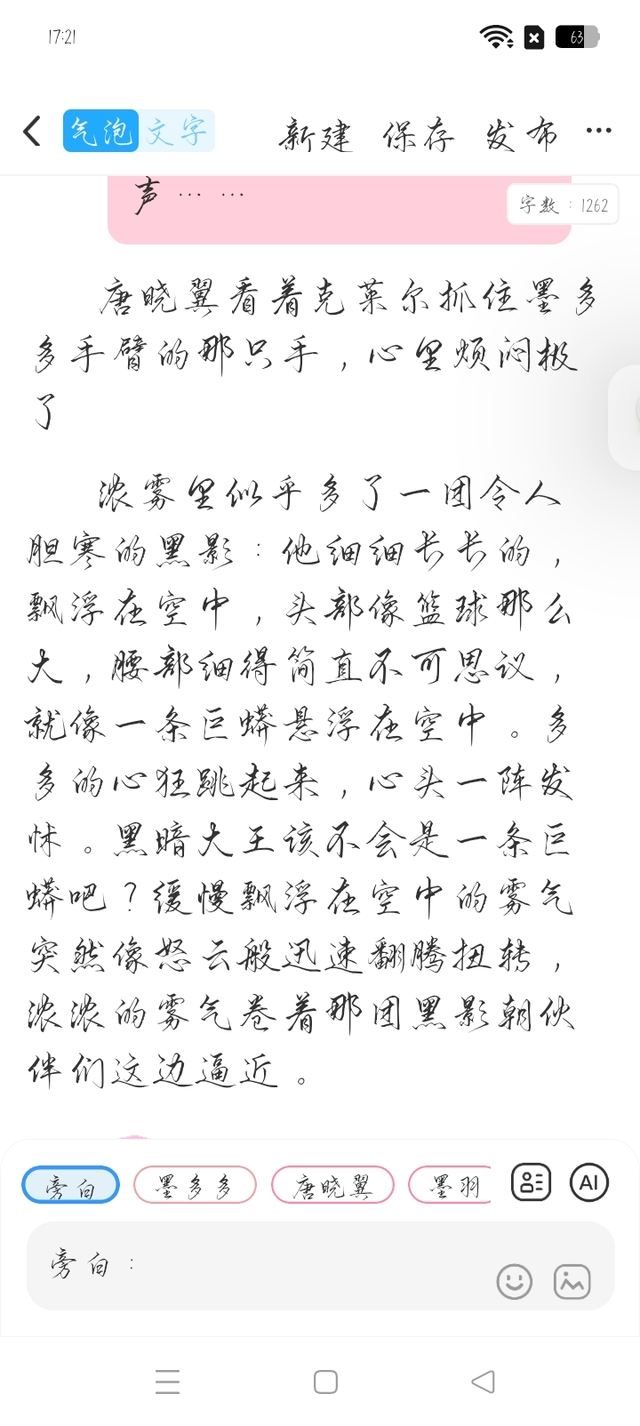 17:21
63
气泡 文字 新建 保存 发布 …
声……
字数：1262
唐晓翼看着克莱尔抓住墨多
多手臂的那只手，心里烦闷极
了
浓雾里似乎多了一团令人
胆寒的黑影：他细细长长的，
飘浮在空中，头部像篮球那么
大，腰部细得简直不可思议，
就像一条巨蟒悬浮在空中。多
多的心狂跳起来，心头一阵发
怵。黑暗大王该不会是一条巨
蟒吧？缓慢飘浮在空中的雾气
突然像怒云般迅速翻腾扭转，
浓浓的雾气卷着那团黑影朝伙
伴们这边逼近。
旁白 墨多多 唐晓翼 墨羽 AI
旁白：